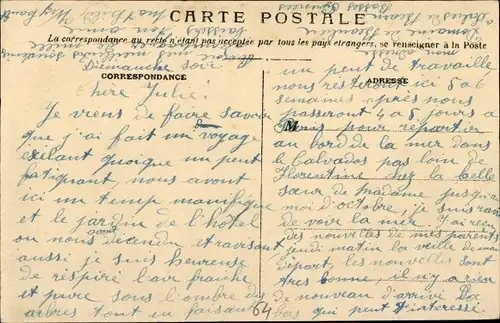 CARTE POSTALE
La correspondance au recto n'étant pas acceptée par tous les pays étrangers, se renseigner à la Poste
Dimanche soir
CORRESPONDANCE
Chère Julie!
Je viens de faire savoir
que j'ai fait un voyage
exilant quoique un peut
fatiguant, nous avont
ici un temp manifique
et le jardin de l'hôtel
ou nous avont décendu et ravsant
aussi je suis heureuse
de respiré l'air fraiche
et pure sous l'ombre des
arbres tout en faisant
64
ADRESSE
M
un peut de travaille
nous resteront ici 5 a 6
semaines après nous
passeront 4 a 5 jours a
Paris pour repartir
au bord de la mer dans
le Calvados pas loin de
Florentine chez la belle
sœur de madame jusqu'au
moi d'octobre, je suis
de voir la mer J'ai reçu
des nouvelles de mes parents
jeudi matin la veille de mon
départ, les nouvelles sont
tres bonne, il n'y a rien
de nouveau d'arrivé
bas qui peut t'interessé